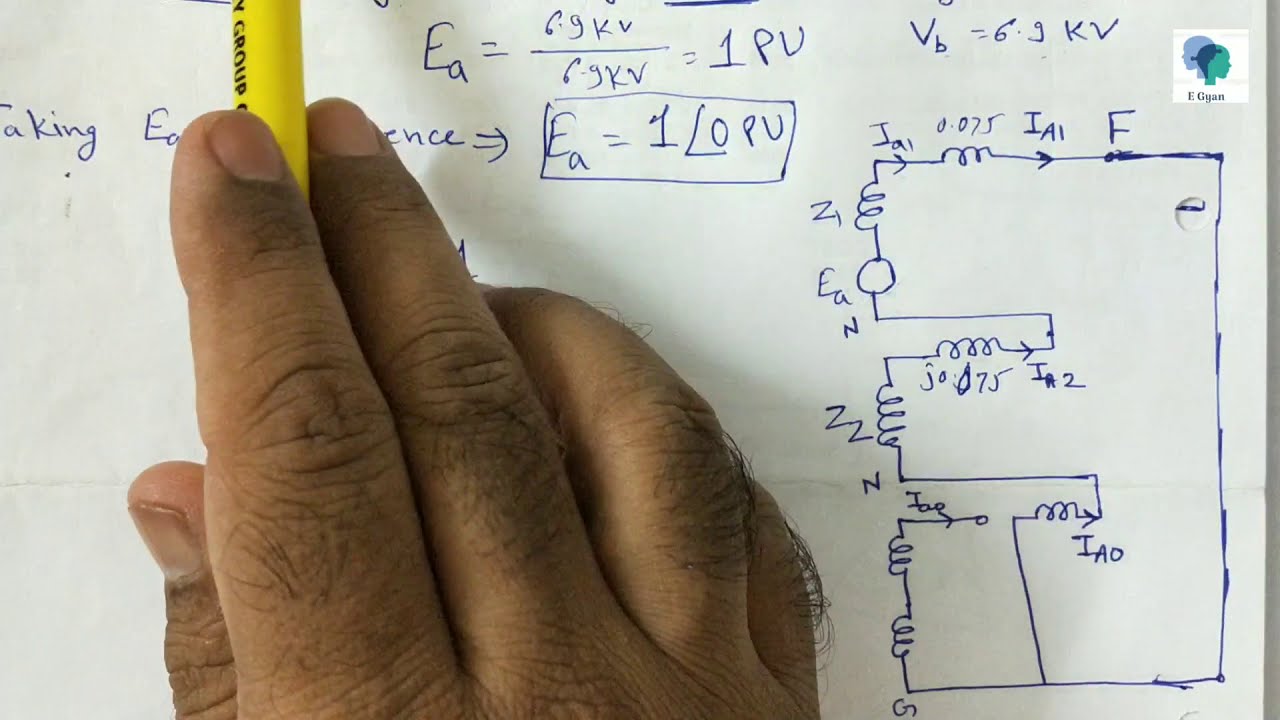 Ea = 6.9KV / 6.9KV = 1 PU
Vb = 6.9 KV
E Gyan
Taking Ea ence ⇒ Ea = 1∠0 PU
Y GROUP
Ia1 0.075 IA1 F
Z1
Ea
N
j0.075 IA2
Z2
N
Ia0
IA0
G